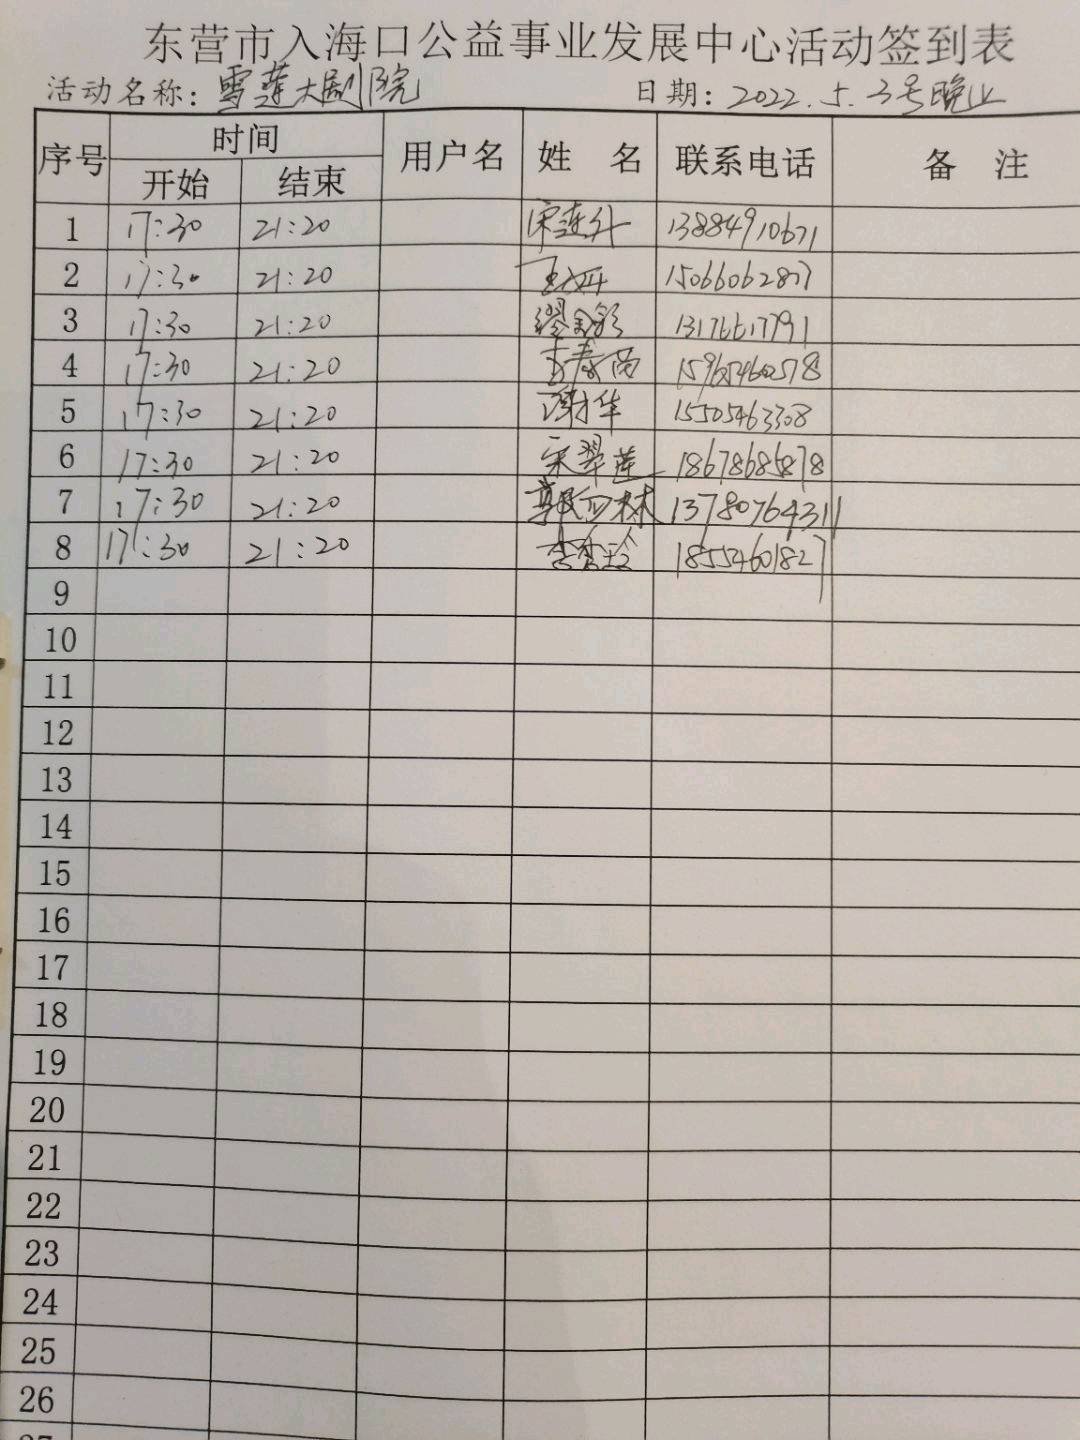 东营市入海口公益事业发展中心活动签到表
活动名称：雪莲大剧院 日期：2022.5.3号晚上
序号 时间 用户名 姓名 联系电话 备注
开始 结束
1 17:30 21:20 宋连升 13884910671
2 17:30 21:20 15066062877
3 17:30 21:20 缪 彩 13176617791
4 17:30 21:20 李春 15965460578
5 17:30 21:20 谢华 15505463308
6 17:30 21:20 宋翠莲 18678685878
7 17:30 21:20 郭 林 13780764311
8 17:30 21:20 李 玲 18554601827
9
10
11
12
13
14
15
16
17
18
19
20
21
22
23
24
25
26